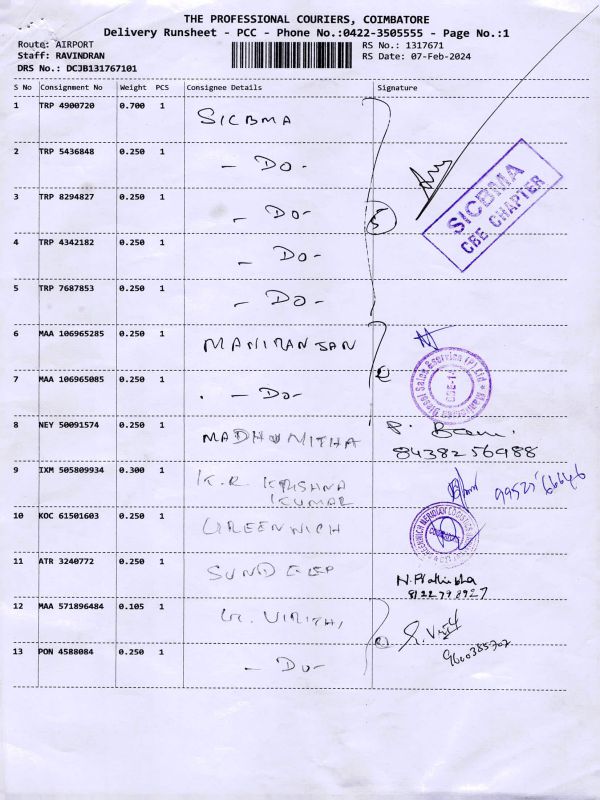 THE PROFESSIONAL COURIERS, COIMBATORE
Delivery Runsheet - PCC - Phone No.:0422-3505555 - Page No.:1
Route: AIRPORT RS No.: 1317671
Staff: RAVINDRAN RS Date: 07-Feb-2024
DRS No.: DCJB131767101
S No Consignment No Weight PCS Consignee Details Signature
1 TRP 4900720 0.700 1 SICBMA
2 TRP 5436848 0.250 1 - DO -
3 TRP 8294827 0.250 1 - DO -
5
SICBMA
CBE CHAPTER
4 TRP 4342182 0.250 1 - DO -
5 TRP 7687853 0.250 1 - DO -
6 MAA 106965285 0.250 1 MANIRANJAN
7 MAA 106965085 0.250 1 - DO -
8 NEY 50091574 0.250 1 MADHUNITHA
8438256988
9 IXM 505809934 0.300 1 K.R. KRISHNA
KUMAR
10 KOC 61501603 0.250 1 GREENWICH
11 ATR 3240772 0.250 1 SUNDEEP N. Prathibha
8122798927
12 MAA 571896484 0.105 1
9600385702
13 PON 4588084 0.250 1 - DO -